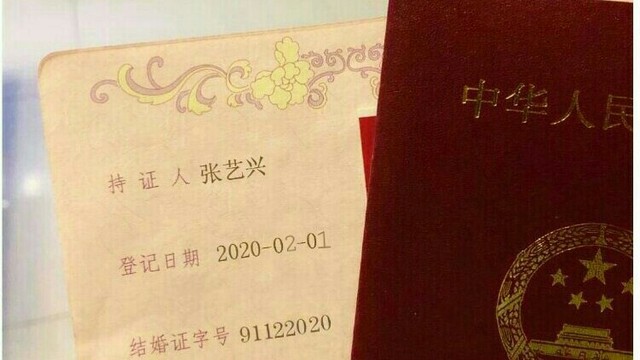 中华人民
持证人 张艺兴
登记日期 2020-02-01
结婚证字号 91122020